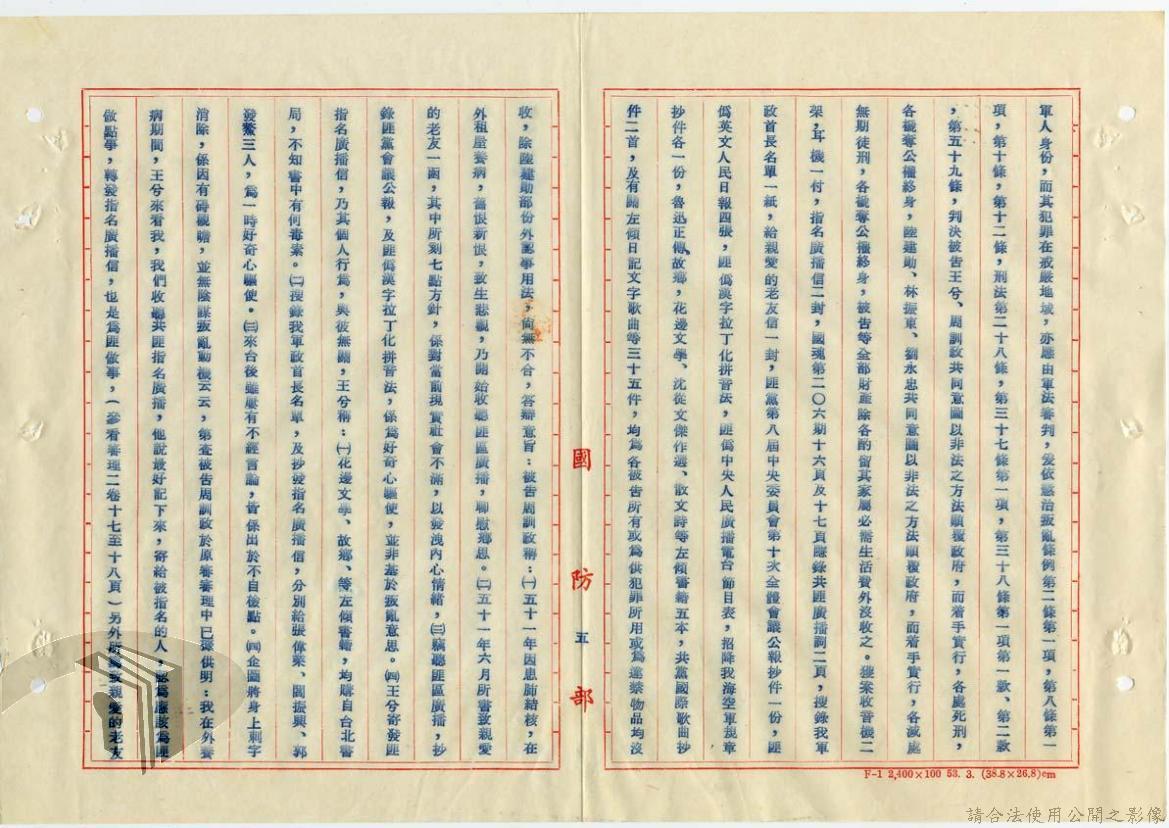 軍人身份，而其犯罪在戒嚴地域，亦應由軍法審判，爰依懲治叛亂條例第二條第一項，第八條第一
項，第十條，第十二條，刑法第二十八條，第三十七條第一項，第三十八條第一項第一款、第二款
，第五十九條，判決被告王兮、周訓政共同意圖以非法之方法顛覆政府，而着手實行，各處死刑，
各褫奪公權終身，陸建勛、林振東、劉永忠共同意圖以非法之方法顛覆政府，而着手實行，各減處
無期徒刑，各褫奪公權終身，被告等全部財產除各酌留其家屬必需生活費外沒收之。獲案收音機二
架，耳機一付，指名廣播信二封，國魂第二〇六期十六頁及十七頁騰錄共匪廣播詞二頁，搜錄我軍
政首長名單一紙，給親愛的老友信一封，匪黨第八屆中央委員會第十次全體會議公報抄件一份，匪
偽英文人民日報四張，匪偽漢字拉丁化拼音法，匪偽中央人民廣播電台節目表，招降我海空軍規章
抄件各一份，魯迅正傳、故鄉，花邊文學、沈從文傑作選、散文詩等左傾書籍五本，共黨國際歌曲抄
件二首，及有關左傾日記文字歌曲等三十五件，均為各被告所有或為供犯罪所用或為違禁物品均沒
收，除陸建勛部份外認事用法，尚無不合，答辯意旨：被告周訓政稱：㈠五十一年因患肺結核，在
外租屋養病，舊恨新恨，致生悲觀，乃開始收聽匪區廣播，聊慰鄉思。㈡五十一年六月所書致親愛
的老友一函，其中所列七點方針，係對當前現實社會不滿，以發洩內心情緒，㈢竊聽匪區廣播，抄
錄匪黨會議公報，及匪偽漢字拉丁化拼音法，係為好奇心驅使，並非基於叛亂意思。㈣王兮寄發匪
指名廣播信，乃其個人行為，與彼無關，王兮稱：㈠花邊文學、故鄉、等左傾書籍，均購自台北書
局，不知書中有何毒素。㈡搜錄我軍政首長名單，及抄發指名廣播信，分別給張偉業、閻振興、郭
發鰲三人，為一時好奇心驅使。㈢來台後雖屢有不經言論，皆係出於不自檢點。㈣企圖將身上刺字
消除，係因有碍觀瞻，並無陰謀叛亂動機云云，第查被告周訓政於原審審理中已遞供明：我在外養
病期間，王兮來看我，我們收聽共匪指名廣播，他說最好記下來，寄給被指名的人，認為應該為匪
做點事，轉發指名廣播信，也是為匪做事，（參看審理二卷十七至十八頁）另外所寫致親愛的老友
國防五部
F-1 2,400×100 53. 3. (38.8×26.8)cm
請合法使用公開之影像